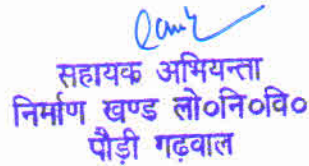 सहायक अभियन्ता
निर्माण खण्ड लो०नि०वि०
पौड़ी गढ़वाल